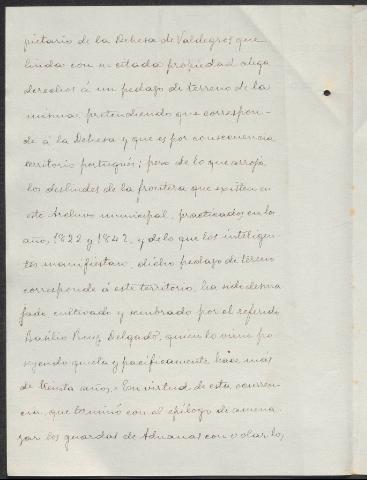 pietario de la Dehesa de Valdegros que
linda con su citada propiedad alega
derechos á un pedazo de terreno de la
misma, pretendiendo que correspon-
de á la Dehesa y que es por consecuencia
territorio portugués; pero de lo que arroja
los deslindes de la frontera que existen en
este Archivo municipal, practicados en los
años, 1822 y 1842, y de lo que los inteligen-
tes manifiestan, dicho pedazo de terreno
corresponde á este territorio, ha sido desma
jado cultivado y sembrado por el referido
Basilio Ruiz Delgado, quien lo viene po-
seyendo quieta y pacíficamente hace más
de treinta años. En virtud de esta ocurren-
cia, que terminó con el epílogo de amena-
zar los guardas de Aduanas con volar los